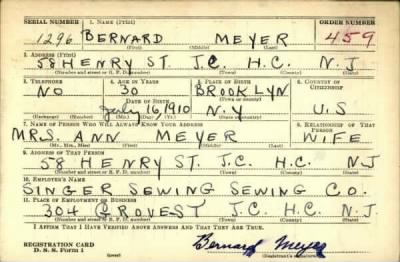 SERIAL NUMBER 1. NAME (Print) ORDER NUMBER
1296 BERNARD MEYER 459
(First) (Middle) (Last)
2. ADDRESS (Print)
58 HENRY ST. J.C. H.C. N.J
(Number and street or R. F. D. number) (Town) (County) (State)
3. TELEPHONE 4. AGE IN YEARS 5. PLACE OF BIRTH 6. COUNTRY OF CITIZENSHIP
NO 30 BROOKLYN
DATE OF BIRTH (Town or county)
July 16, 1910 N.Y U.S
(Exchange) (No.) (Mo.) (Day) (Yr.) (State or country)
7. NAME OF PERSON WHO WILL ALWAYS KNOW YOUR ADDRESS 8. RELATIONSHIP OF THAT PERSON
MRS. ANN MEYER WIFE
(Mr., Mrs., Miss) (First) (Middle) (Last)
9. ADDRESS OF THAT PERSON
58 HENRY ST. J.C. H.C. N.J
(Number and street or R. F. D. number) (Town) (County) (State)
10. EMPLOYER'S NAME
SINGER SEWING SEWING CO.
11. PLACE OF EMPLOYMENT OR BUSINESS
304 GROVE ST J.C. H.C. N.J.
(Number and street or R. F. D. number) (Town) (County) (State)
I AFFIRM THAT I HAVE VERIFIED ABOVE ANSWERS AND THAT THEY ARE TRUE.
REGISTRATION CARD
D. S. S. Form 1
Bernard Meyer
(Registrant's signature)